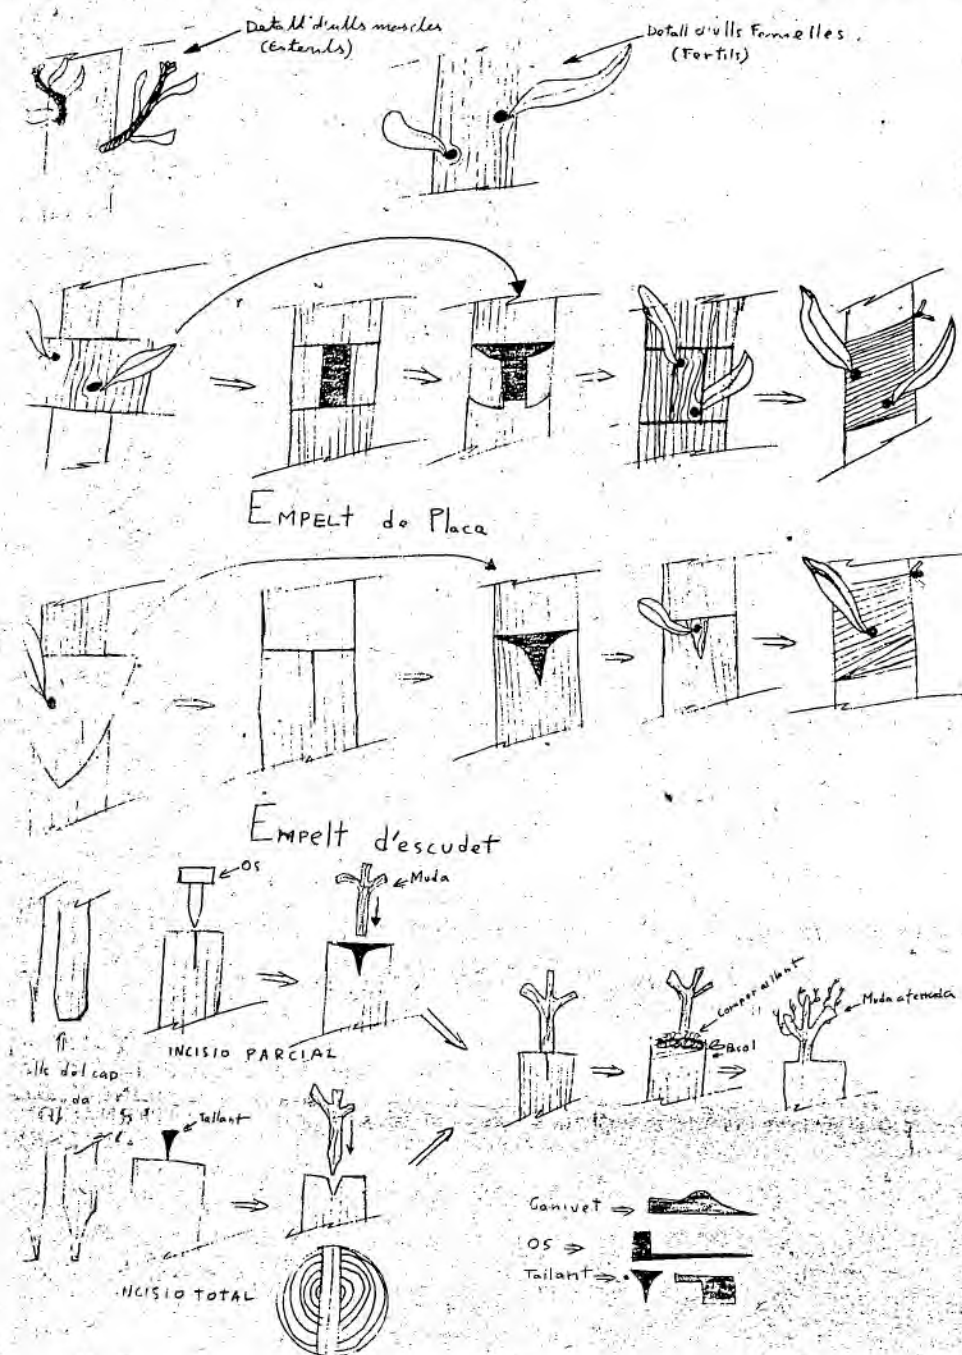 Detall d'ulls mascles
(Esterils)
Detall d'ulls Femelles.
(Fertils)
EMPELT de Placa
EMPelt d'escudet
OS
Muda
INCISIO PARCIAL
del cap
Tallant
Bcol
Muda aferrada
INCISIO TOTAL
Ganivet
OS
Tallant